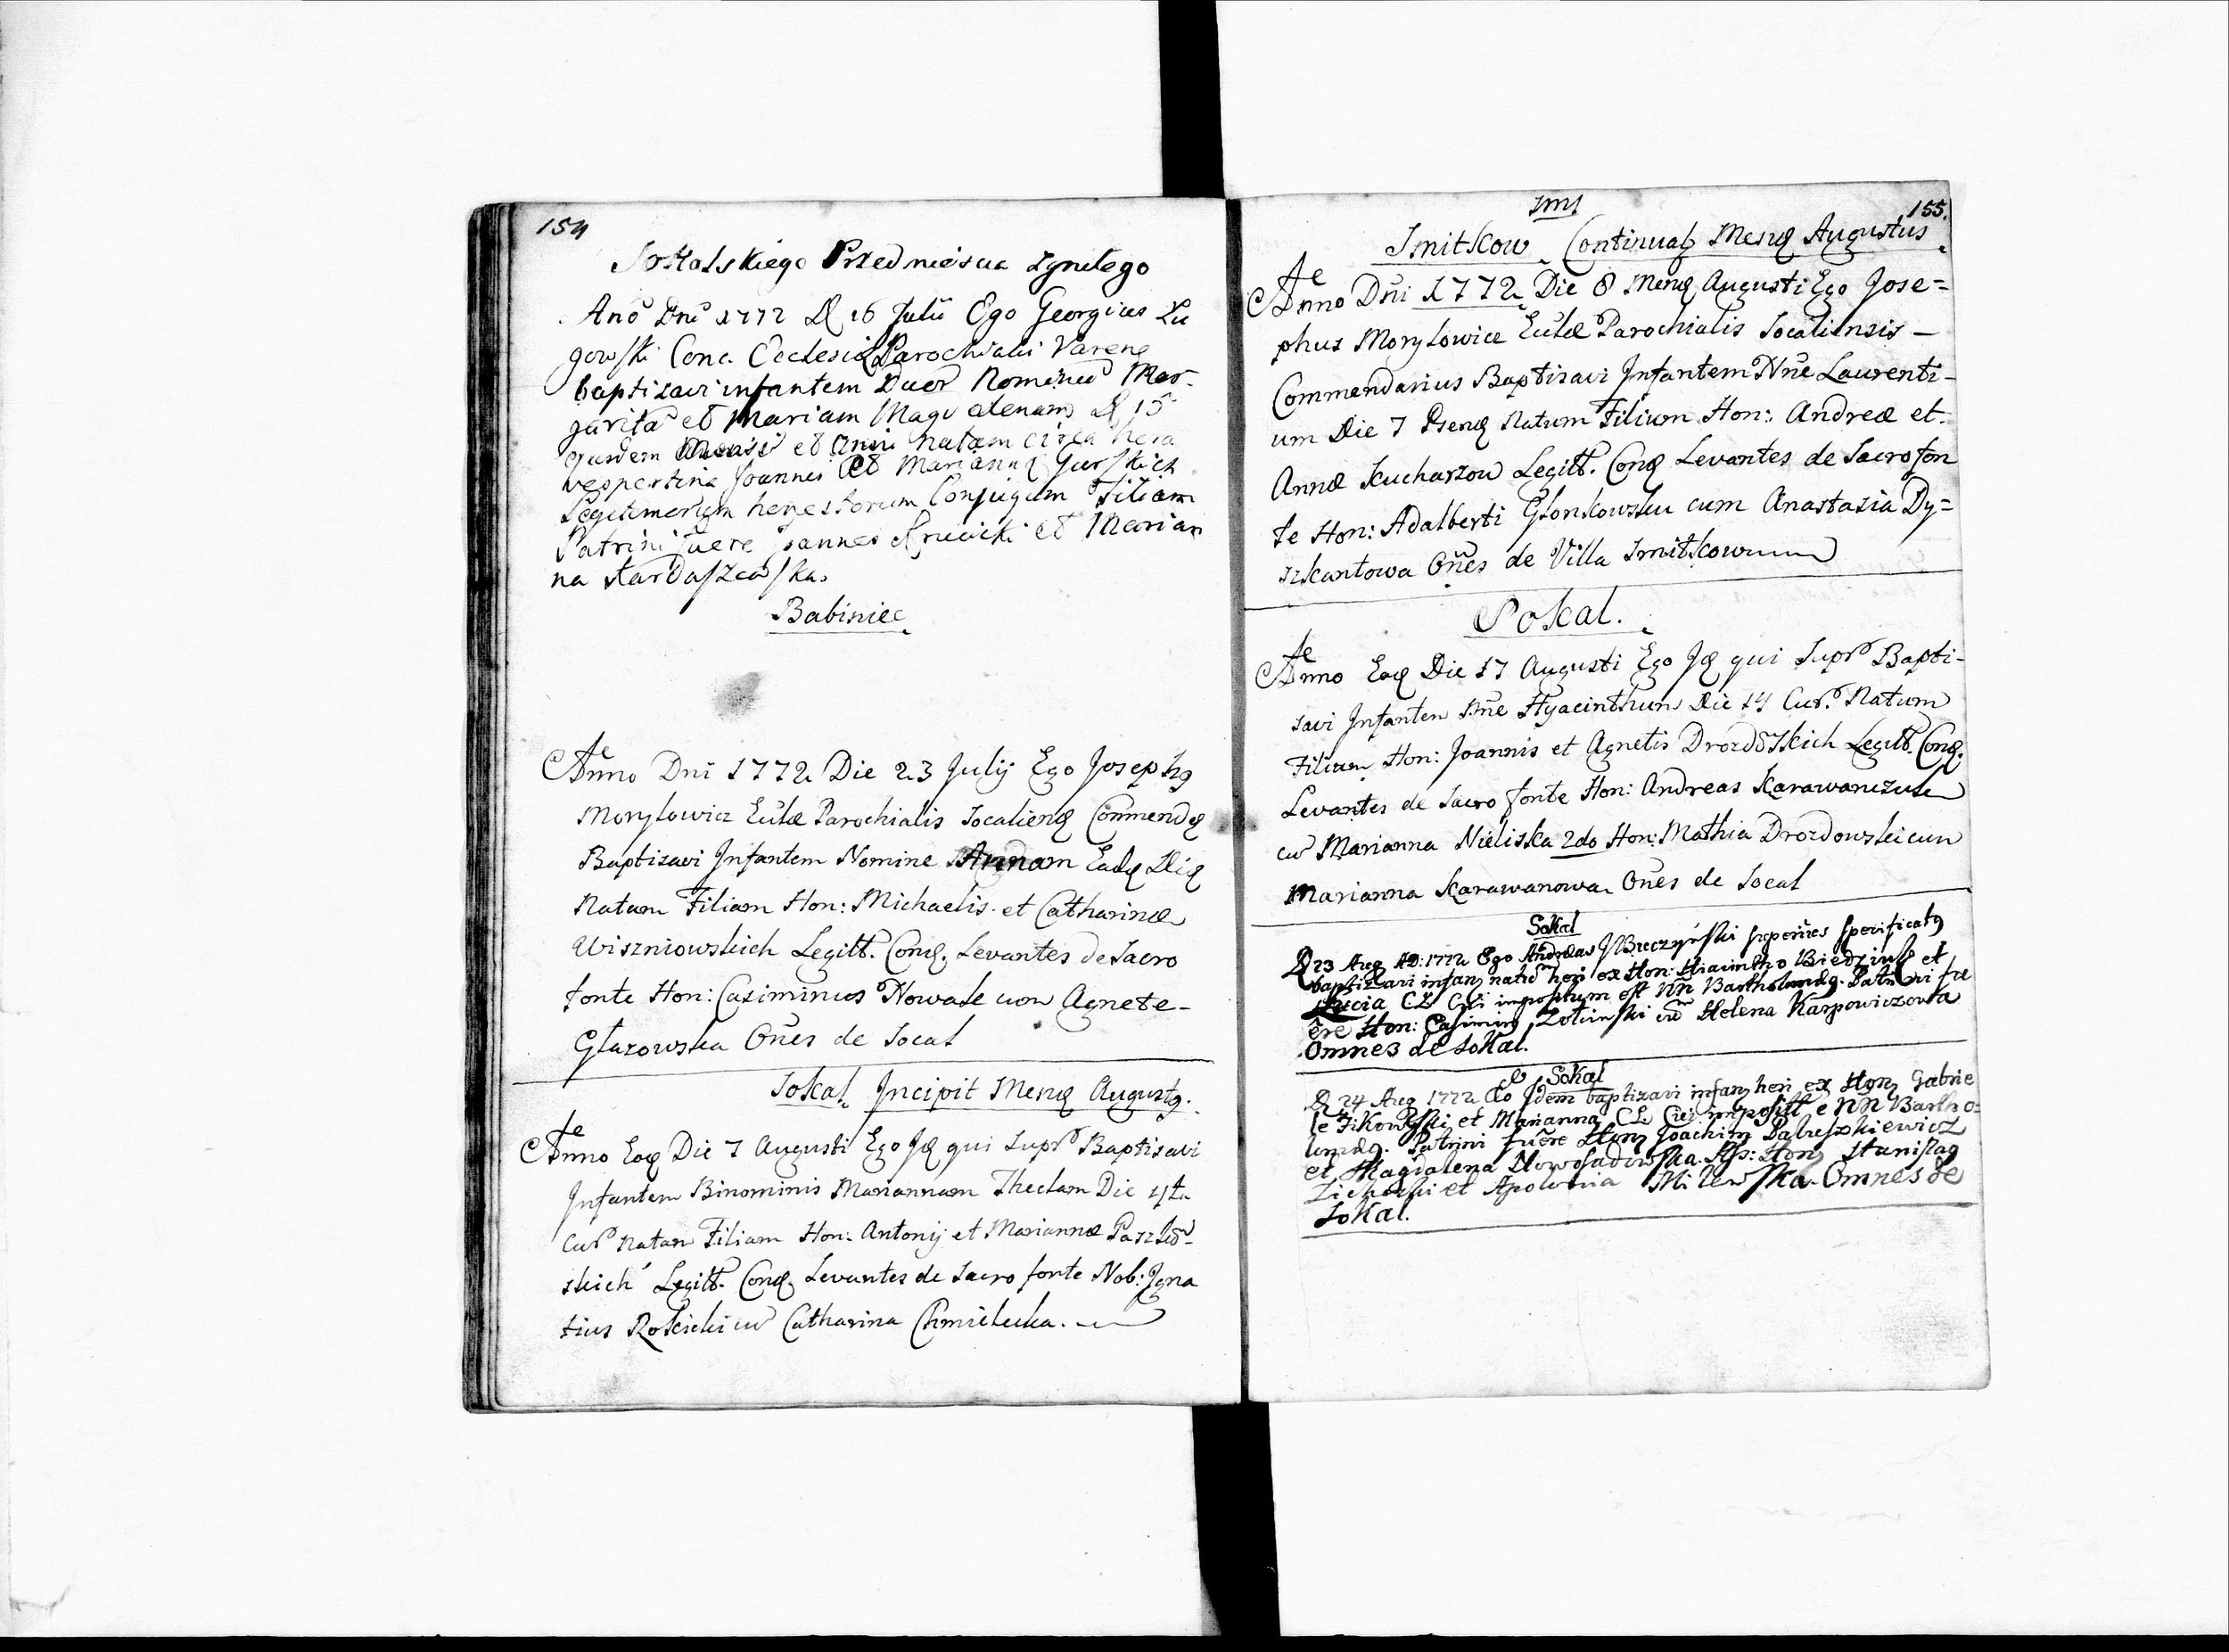 154
Sokalskiego Przedmiescia zgnitego
Ano Dni 1772 D 16 Julii Ego Georgius Lu
gowski Conc. Ecclesiæ Parochialis Varenę
baptizavi infantem Duor Nominū Mar-
garitā et Mariam Magdalenam D 15
ejusdem Mensis et anni natam circa hora
vespertina Joannis et Mariannę Gurskich
Legitimorum honestorum Conjugum Filiam
Patrini fuere Joannes et Marian
na Kardaszewska.
Babiniec
Anno Dni 1772 Die 23 Julij Ego Josephg
Morylowicz Eulæ Parochialis Socalienę Commendę
Baptisavi Infantem Nomine Annam Eadę Die
Natam Filiam Hon: Michaelis et Catharinæ
Wiszniowskich Legitt. Conę. Levantes de Sacro
fonte Hon: Casimirus Nowak cum Agnete-
Glazowska Oñes de Socal
Sokal Incipit Mensę Augustg.
Anno Eoę Die 7 Augusti Ego Ję qui Supr Baptisavi
Infantem Binominis Mariannam Theclam Die 4ta
Cur Natam Filiam Hon: Antonij et Mariannæ Paszko-
skich Legitt. Conę. Levantes de Sacro fonte Nob: Igna
tius Rościcki cu Catharina Chmielecka.
Smi
155.
Smitkow Continuat Mensę Augustus
Anno Dñi 1772 Die 8 Mensę Augusti Ego Jose=
phus Morylowicz Eulæ Parochialis Socaliensis —
Commendarius Baptisavi Infantem Nñe Laurenti-
um Die 7 Natum Filium Hon: Andreæ et
Annæ Kucharzow Legitt. Conę Levantes de Sacro fon
te Hon: Adalberti Glonkowski cum Anastasia Dy=
szkantowa Oñes de Villa Smitkow
Sokal.
Anno Eoę Die 17 Augusti Ego Ję qui Supr Bapti-
savi Infantem Nñe Hyacinthum Die 14 Cur. Natum
Filium Hon: Joannis et Agnetis Drozdoskich Legitt. Conę.
Levantes de Sacro fonte Hon: Andreas Karawanczuk
cu Marianna Nieliska 2do Hon: Mathia Drozdowski cum
Marianna Karawanowa Oñes de Socal
Sokal
D 23 Aug AD: 1772 Ego Andreas superius specificatg
baptizavi infan natū heri ex Hon: Hiacintho Biedziuk et
Lucia CL Cui impositum est Nñ Bartholomæg. Patrini fu
ēre Hon: Casimirg Zolinski cū Helena Karpowiczowa
Omnes de Sokal.
Sokal
D 24 Aug 1772 Eo Idem baptizavi infan heri ex Hon Gabrie
le Fikowski et Marianna CL Cui imposiit ē Nñ Bartho=
lomæg. Patrini fuēre Hon Joachim Dabreszkiewicz
et Magdalena Nowosadowska. As: Hon Stanislag
Zichocki et Apolonia Milewska. Omnes de
Sokal.